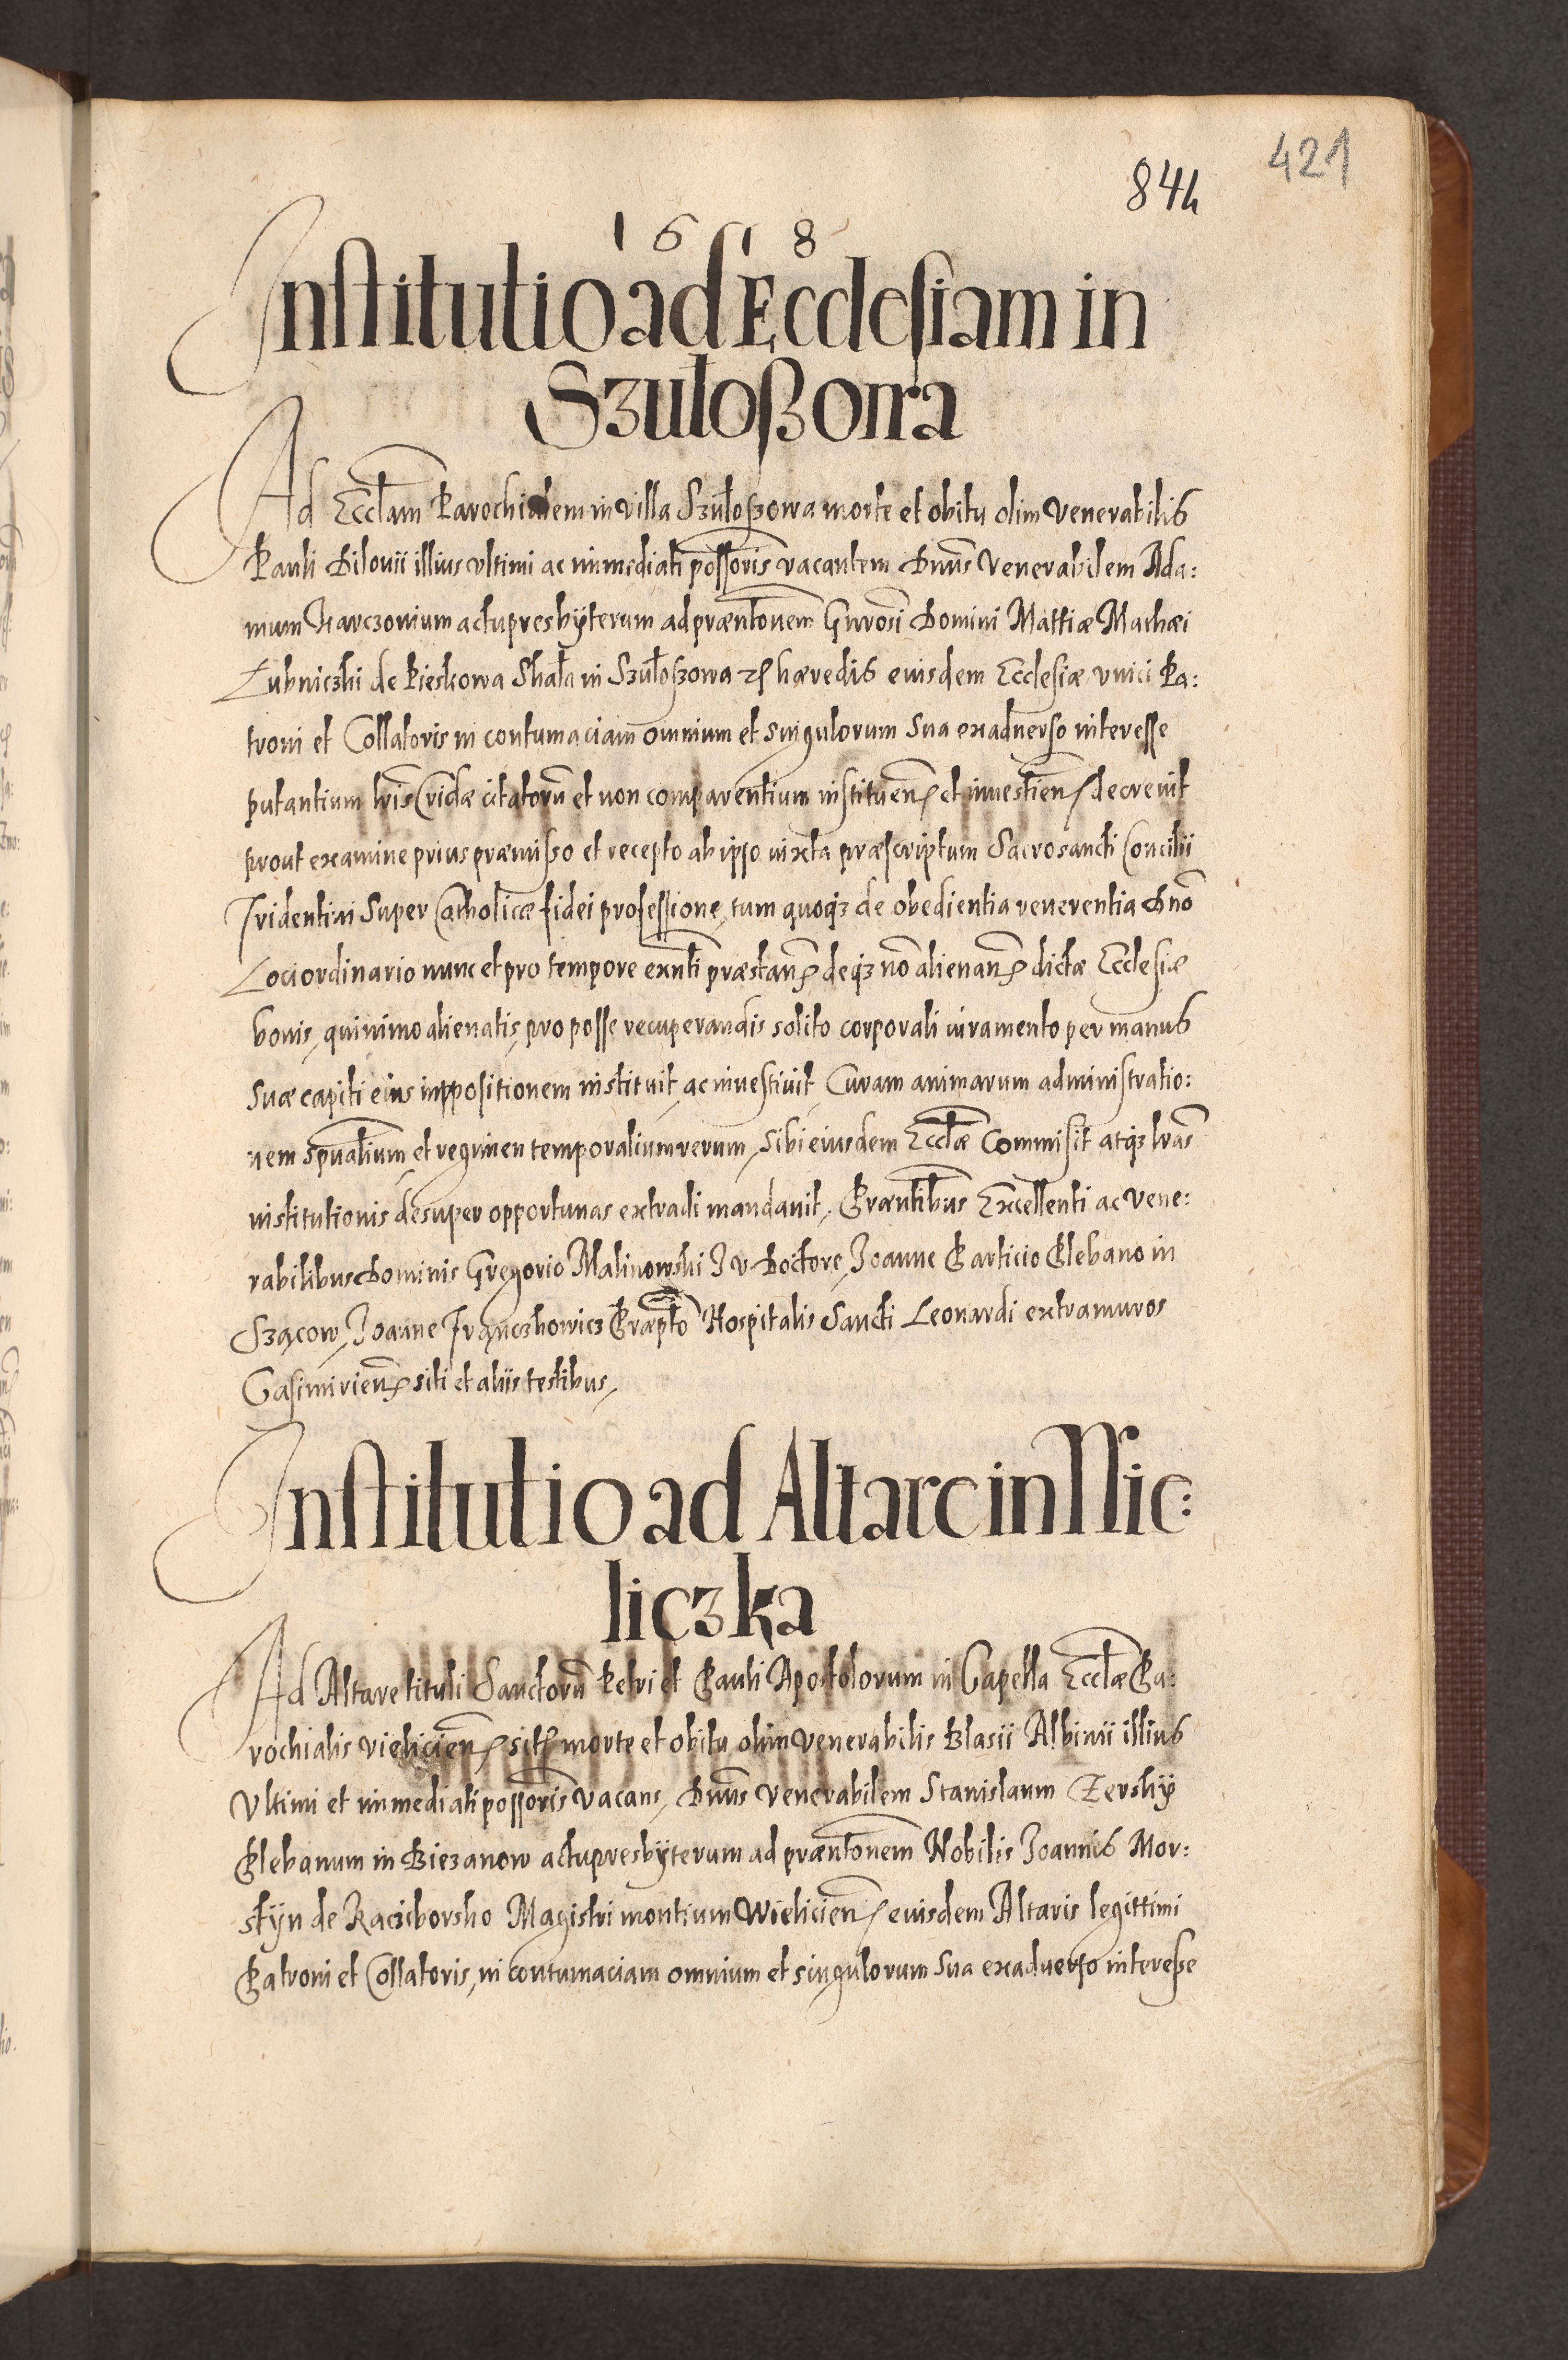 421
844
1618
Institutio ad Ecclesiam in
Szułoszowa
Ad Eccłam Parochialem in villa Szułoszowa morte et obitu olim Venerabilis
Pauli Dilouii illius vltimi ac immediati possoris vacantem Dnus Venerabilem Ada:
mum Karczouium actupresbyterum ad præntonem Gnrosi Domini Mattiæ Machæi
Łubniczki de Pieskowa Skała in Szułoszowa etc hæredis eiusdem Ecclesiæ vnici Pa:
troni et Collatoris in contumaciam omnium et singulorum sua exaduerso interesse
putantium lris Cridæ citatorũ et non comparentium instituen et inuestien decreuit
prout examine prius præmisso et recepto ab ipso iuxta præscriptum Sacrosancti Concilii
Tridentini super Catholicæ fidei professione, tum quoq3 de obedientia reuerentia Dno
Loci ordinario nunc et pro tempore exnti præstan deq3 no alienan dictæ Ecclesiæ
bonis, quinimo alienatis, pro posse recuperandis solito corporali iuramento per manus
suæ capiti eius impositionem instituit, ac inuestiuit, Curam animarum administratio:
nem spualium et regimen temporalium rerum, sibi eiusdem Ecclæ commisit atq3 lras
institutionis desuper opportunas extradi mandauit, Præntibus Excellenti ac Vene:
rabilibus Dominis Gregorio Malinowski I V Doctore, Joanne Particio Plebano in
Szącow, Joanne Frączkowicz Præpto Hospitalis Sancti Leonardi extra muros
Casimirien siti et aliis testibus,
Institutio ad Altare in Wie:
liczka
Ad Altare tituli Sanctorũ Petri et Pauli Apostolorum in Capella Ecclæ Pa:
rochialis Vielicien sit morte et obitu olim Venerabilis Blasii Albinii illius
Vltimi et immediati possoris vacans, Dnus Venerabilem Stanislaum Zerski
Plebanum in Biezanow actupresbyterum ad præntonem Nobilis Joannis Mor:
styn de Raciborsko Magistri montium Wielicien eiusdem Altaris legittimi
Patroni et Collatoris, in contumaciam omnium et singulorum sua exaduerso interesse